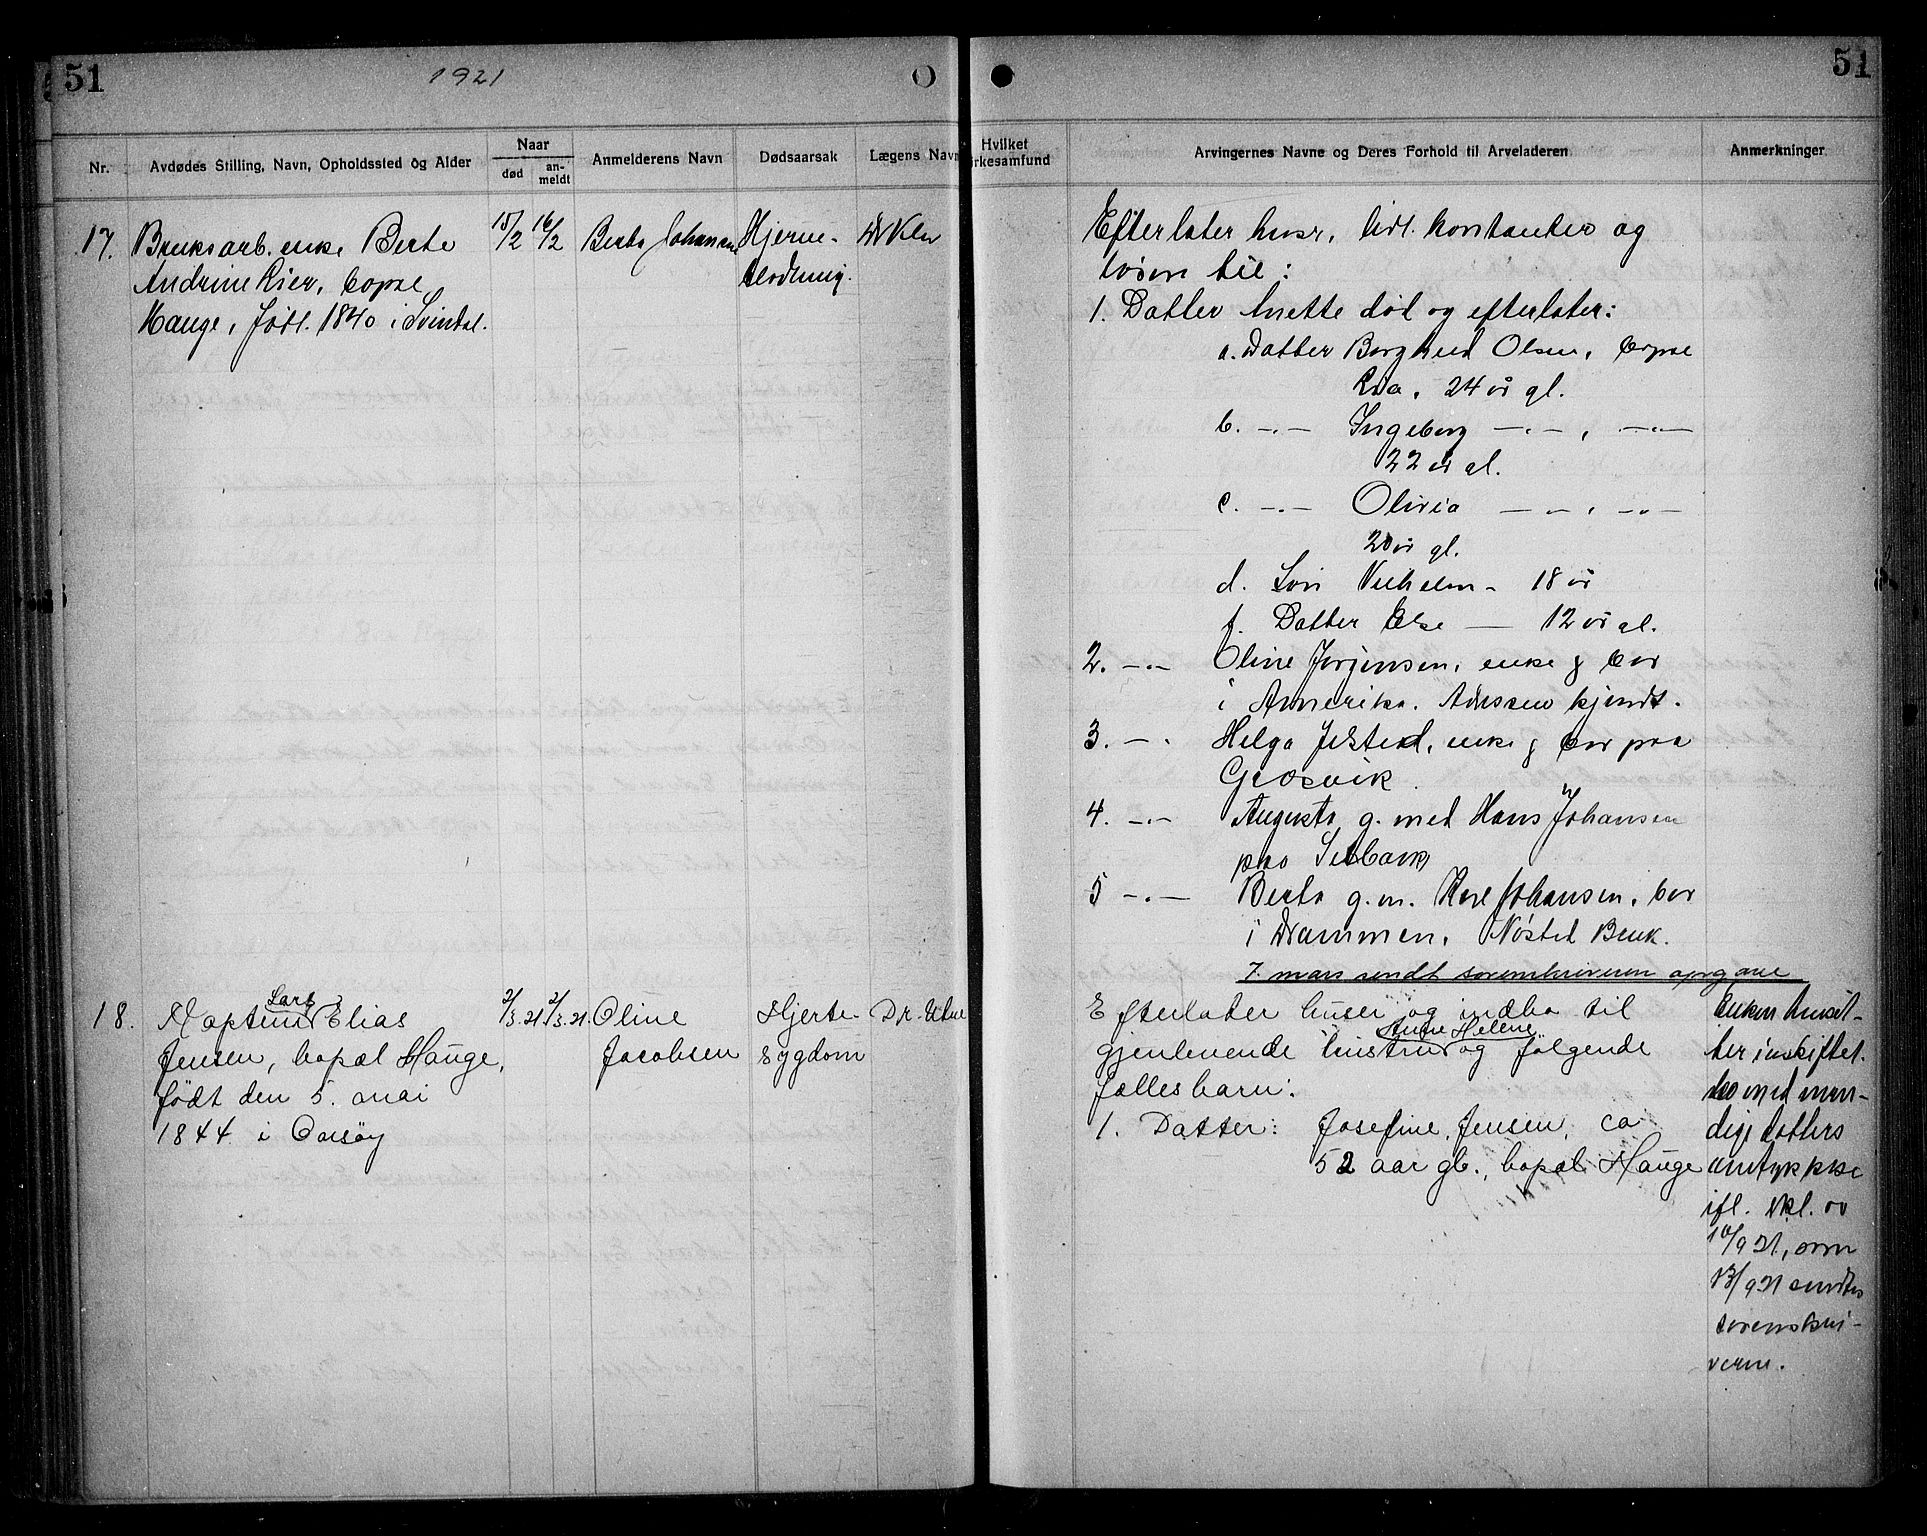 51
1921
51
Nr.
Avdødes Stilling, Navn, Opholdssted og Alder
Naar
død
an-
meldt
Anmelderens Navn
Dødsaarsak
Lægens Navn
Hvilket
irkesamfund
Arvingernes Navne og Deres Forhold til Arveladeren
Anmerkninger
17.
Bruksarb. enke Berte
Andrine Kiær, bopæl
Hauge, født 1840 i Svindal.
15/2
16/2
Berta Johansen
Hjerne-
blødning.
Efterlater huser, lidt kontanter og
løsøre til:
1. Datter Anette død og efterlater:
a. Datter Borghild Olsen, bopæl
24 år gl.
b. -.- Ingeborg -.-, -.-
22 år gl.
c. -.- Olivia -.-, -.-
20 år gl.
d. Søn Vilhelm - 18 år
f. Datter Else — 12 år gl.
2. -.- Oline Jørgensen, enke & bor
i Amerika. Adressen kjendt.
3. -. Helga Jelsted, enke & bor paa
Græsvik.
4. -.- Augusta g. med Hans Johansen
paa Selbak
5 -.- Berta g. m. Karl Johansen, bor
i Drammen, Nøsted Bruk.
sendt sorenskriveren opgave
18.
Kaptein Lars Elias
Jensen, bopæl Hauge,
født den 5. mai
1844 i Onsøy
2/3.21
2/3.21.
Oline
Jacobsen
Hjerte-
sygdom
Dr. Utne
Efterlater huser og indbo til
gjenlevende hustru Anne Helene og følgende
fællesbarn:
1. Datter: Josefine Jensen, ca
52 aar gl., bopæl Hauge
Enken hensit-
ter i uskiftet
bo med myn-
dige datters
samtykke
ifl. skl. av
10/9 21, som
13/9 21 sendtes
sorenskri-
veren.